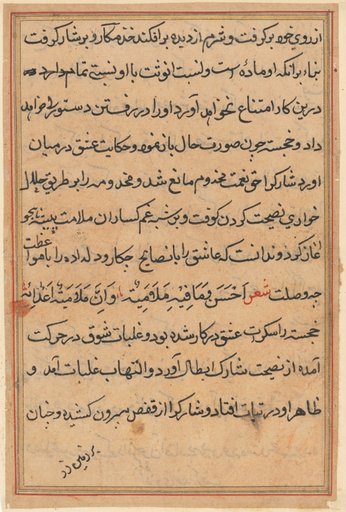 از روی خود برکرفت و شرم از دیده برافکند خنده مکارو بر شارک رفت
بناء برآنکه او ماده است و نسبت انوثت با او نسبتی تمام دارد
درین کار امتناع نخواهد آورد او را در رفتن دستوری خواهد
داد و خجسته چون صورت حال باز نمود و حکایت عشق در میان
آورد شارک را حق نعمت مخدوم مانع شد و مخدومه را بر طریق حلال
خواری نصیحت کردن کوفت و بر شبه غم کساران ملامت
آغاز کرد و ندانست که عاشق را با نصایح چه کار و دلداده را با مواعظت
چه وصلت شعر اَحسَن وَمَا فیه مَلامَیه وَاِنَّ مَلامَتَه اَعدائه
خجسته را سکرت عشق در کار شده بود و غلبات شوق در حرکت
آمده از نصیحت شارک ابطال آورد و التهاب غلبات آمد و
ظاهر او در تپات افتاد و شارک را از قفص بیرون کشید و چنان
بر زمین زد